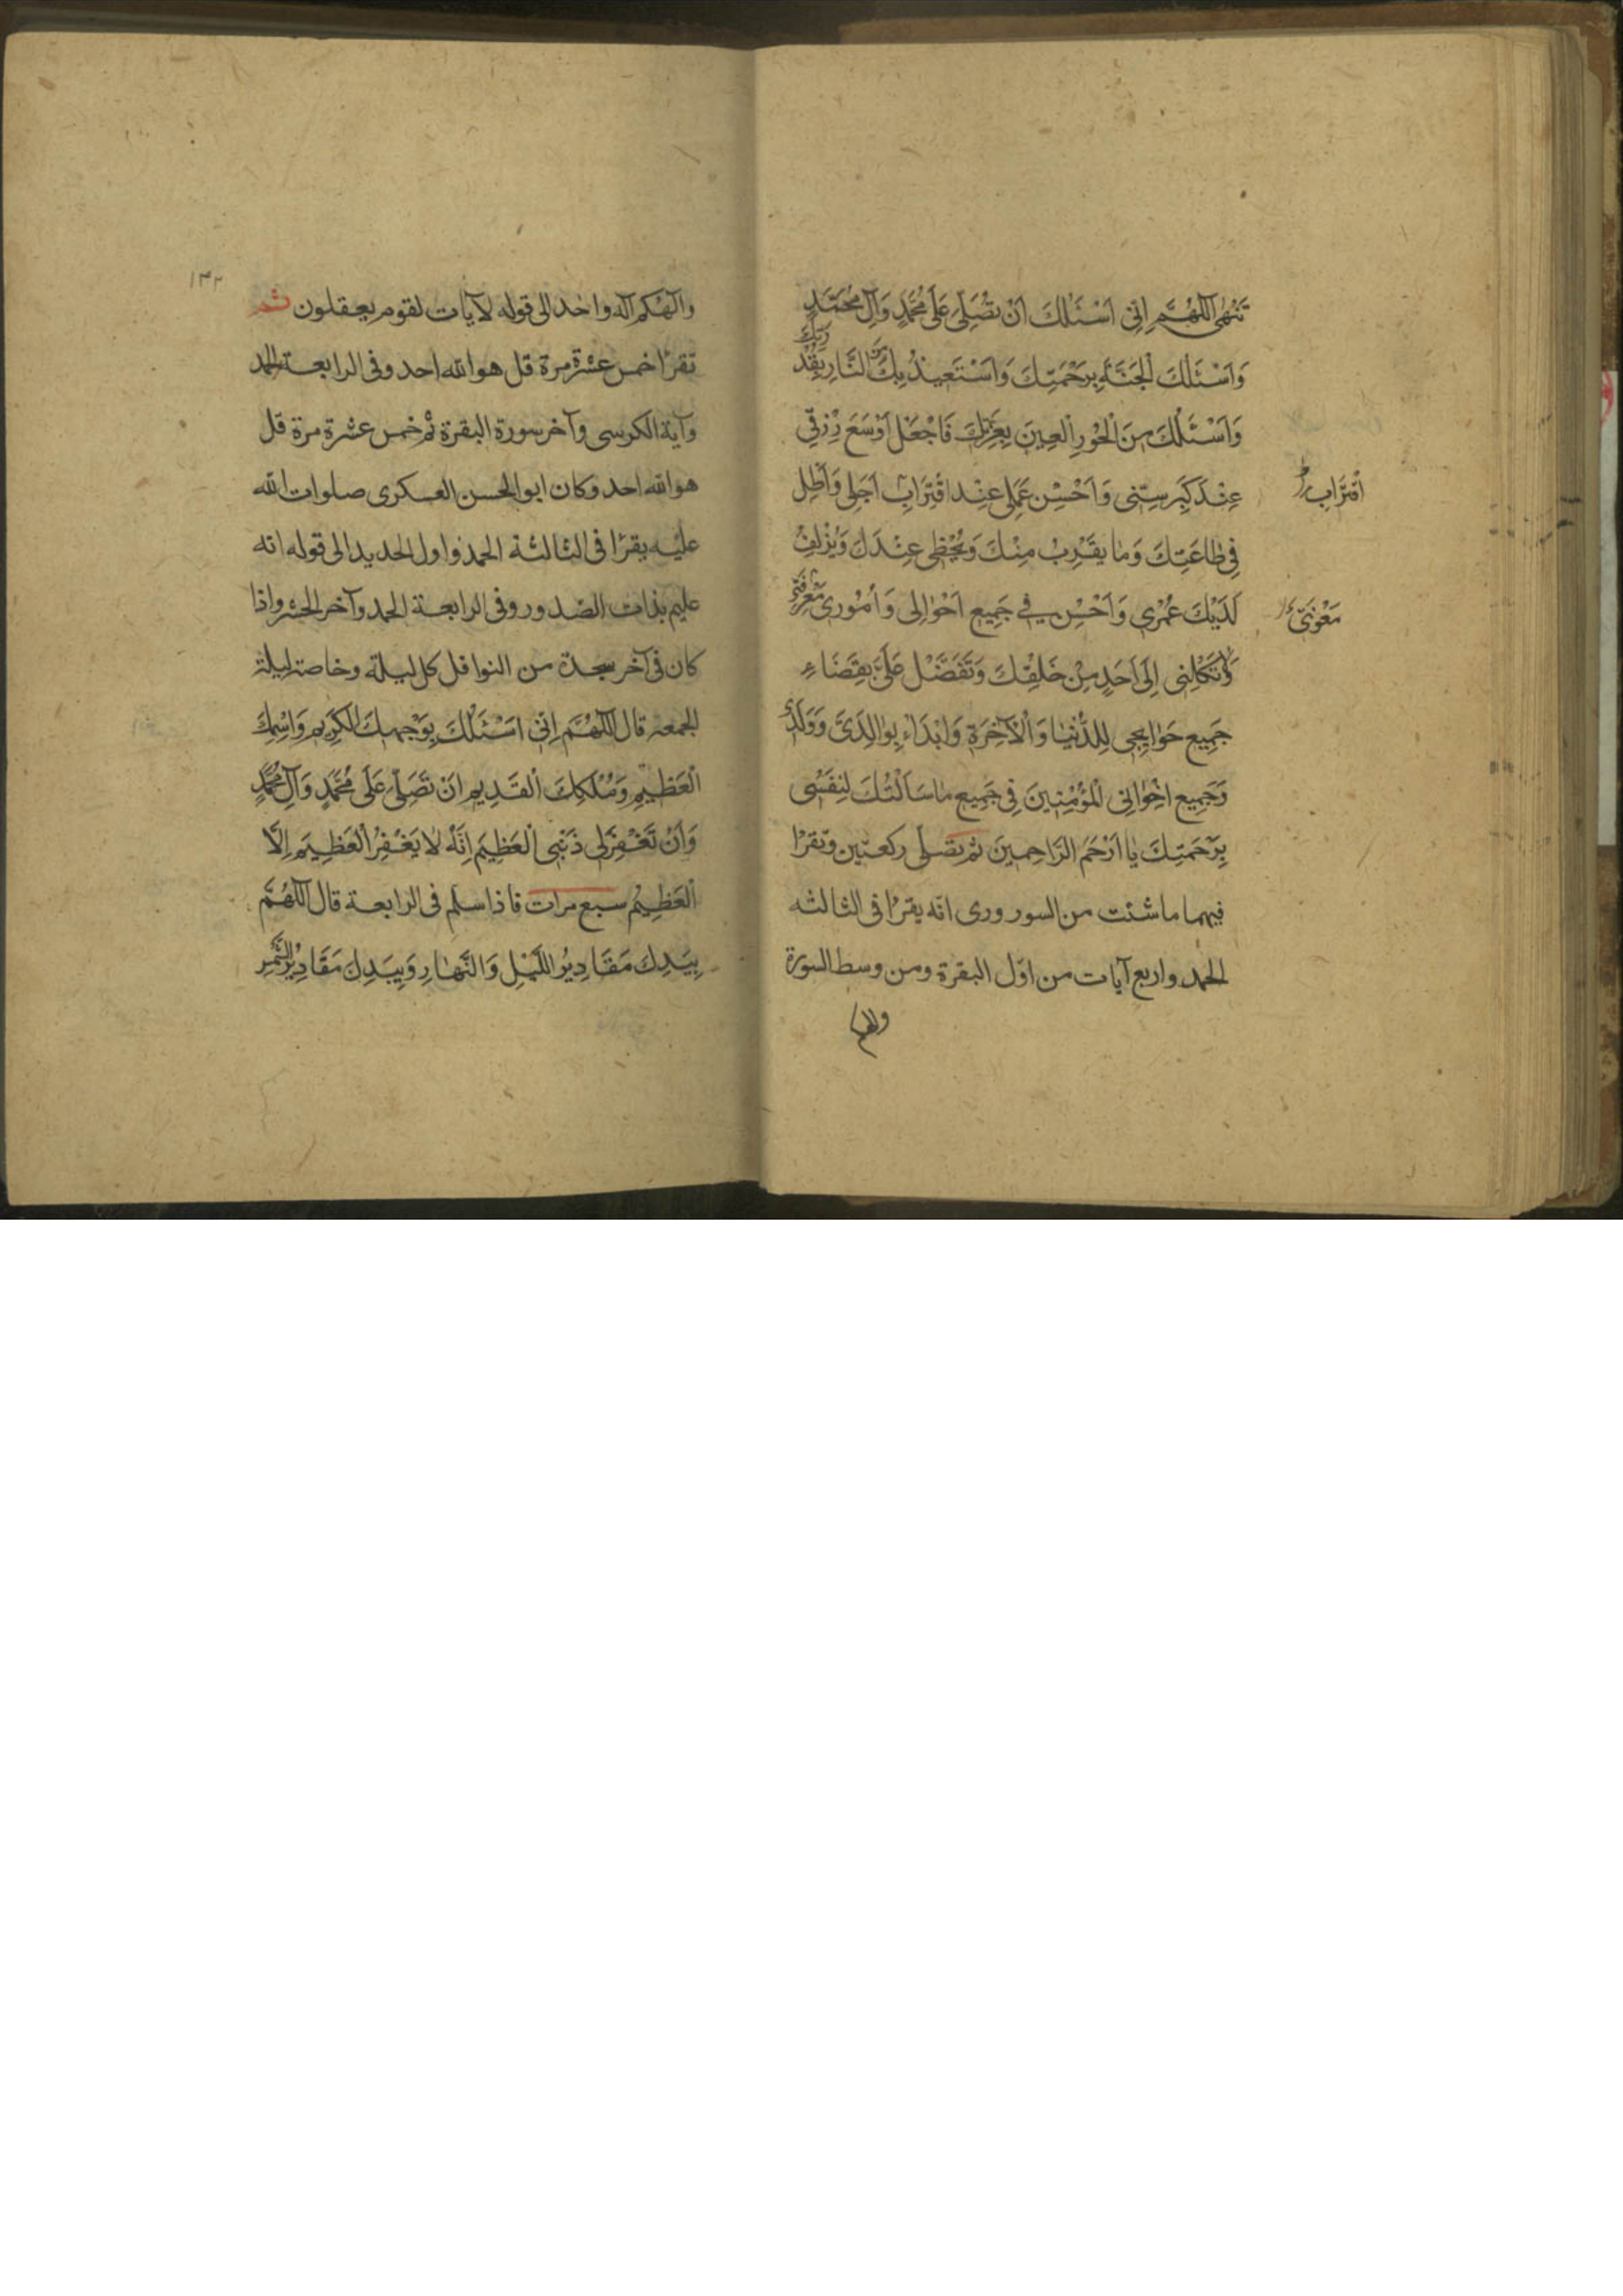 تَنْهٰى اَللّٰهُمَّ اِنّى اَسْئَلُكَ اَنْ تُصَلِّىَ عَلٰى مُحَمَّدٍ وَآلِ مُحَمَّدٍ
وَاَسْئَلُكَ الْجَنَّةَ بِرَحْمَتِكَ وَاَسْتَعيذُ بِكَ مِنَ النَّارِ بِقُدْرَتِكَ
وَاَسْئَلُكَ مِنَ الْحُورِ الْعينِ بِعِزَّتِكَ فَاجْعَلْ اَوْسَعَ رِزْقى
عِنْدَ كِبَرِ سِنّى وَاَحْسَنَ عَمَلى عِنْدَ اقْتِرَابِ اَجَلى وَاَطِلْ
اقْتِرَابِ
فى طَاعَتِكَ وَمَا يُقَرِّبُ مِنْكَ وَيُحْظى عِنْدَكَ وَيُزْلِفُ
لَدَيْكَ عُمْرى وَاَحْسِنْ فى جَميعِ اَحْوَالى وَاُمُورى مَعْرِفَتى
مَعُونَتى
وَلَا تَكِلْنى اِلٰى اَحَدٍ مِنْ خَلْقِكَ وَتَفَضَّلْ عَلَىَّ بِقَضَاءِ
جَميعِ حَوَائِجى لِلدُّنْيَا وَالْآخِرَةِ وَابْدَاْ بِوَالِدَىَّ وَوَلَدى
وَجَميعِ اِخْوَانِى الْمُؤْمِنينَ فى جَميعِ مَا سَاَلْتُكَ لِنَفْسى
بِرَحْمَتِكَ يَا اَرْحَمَ الرَّاحِمينَ ثم تصلى ركعتين وتقرا
فيهما ما شئت من السور وروى انه يقرا فى الثالثه
الحمد واربع آيات من اوّل البقرة ومن وسط السورة
والهكم
١٤٢
والهكم اله واحد الى قوله لآيات لقوم يعقلون ثم
تقرا خمس عشرة مرة قل هو الله احد وفى الرابعة الحمد
وآية الكرسى وآخر سورة البقرة ثم خمس عشرة مرة قل
هو الله احد وكان ابو الحسن العسكرى صلوات الله
عليه يقرا فى الثالثة الحمد واول الحديد الى قوله انه
عليم بذات الصدور وفى الرابعة الحمد وآخر الحشر واذا
كان فى آخر سجدة من النوافل كل ليلة وخاصة ليلة
الجمعه قال اَللّٰهُمَّ اِنّى اَسْئَلُكَ بِوَجْهِكَ الْكَريمِ وَاسْمِكَ
الْعَظيمِ وَمُلْكِكَ الْقَديمِ اَنْ تُصَلِّىَ عَلٰى مُحَمَّدٍ وَآلِ مُحَمَّدٍ
وَاَنْ تَغْفِرَ لى ذَنْبِىَ الْعَظيمَ اِنَّهُ لَا يَغْفِرُ الْعَظيمَ اِلَّا
الْعَظيمُ سبع مرات فاذا سلم فى الرابعة قال اَللّٰهُمَّ
بِيَدِكَ مَقَاديرُ اللَّيْلِ وَالنَّهَارِ وَبِيَدِكَ مَقَاديرُ الشَّمْسِ